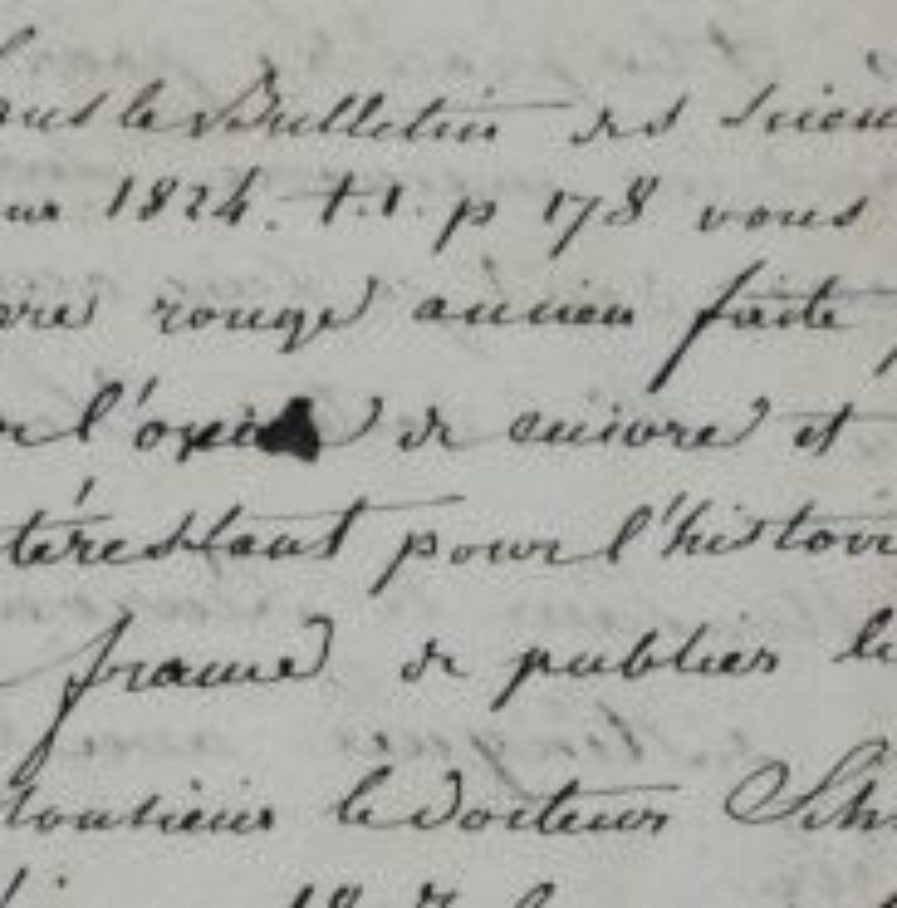 dans le Bulletin des Scien
ur 1824. t.1. p 178 vous
vre rouge ancien faite
r l'oxide de cuivre et
téressant pour l'histoir
france de publier le
Monsieur le Docteur Sch